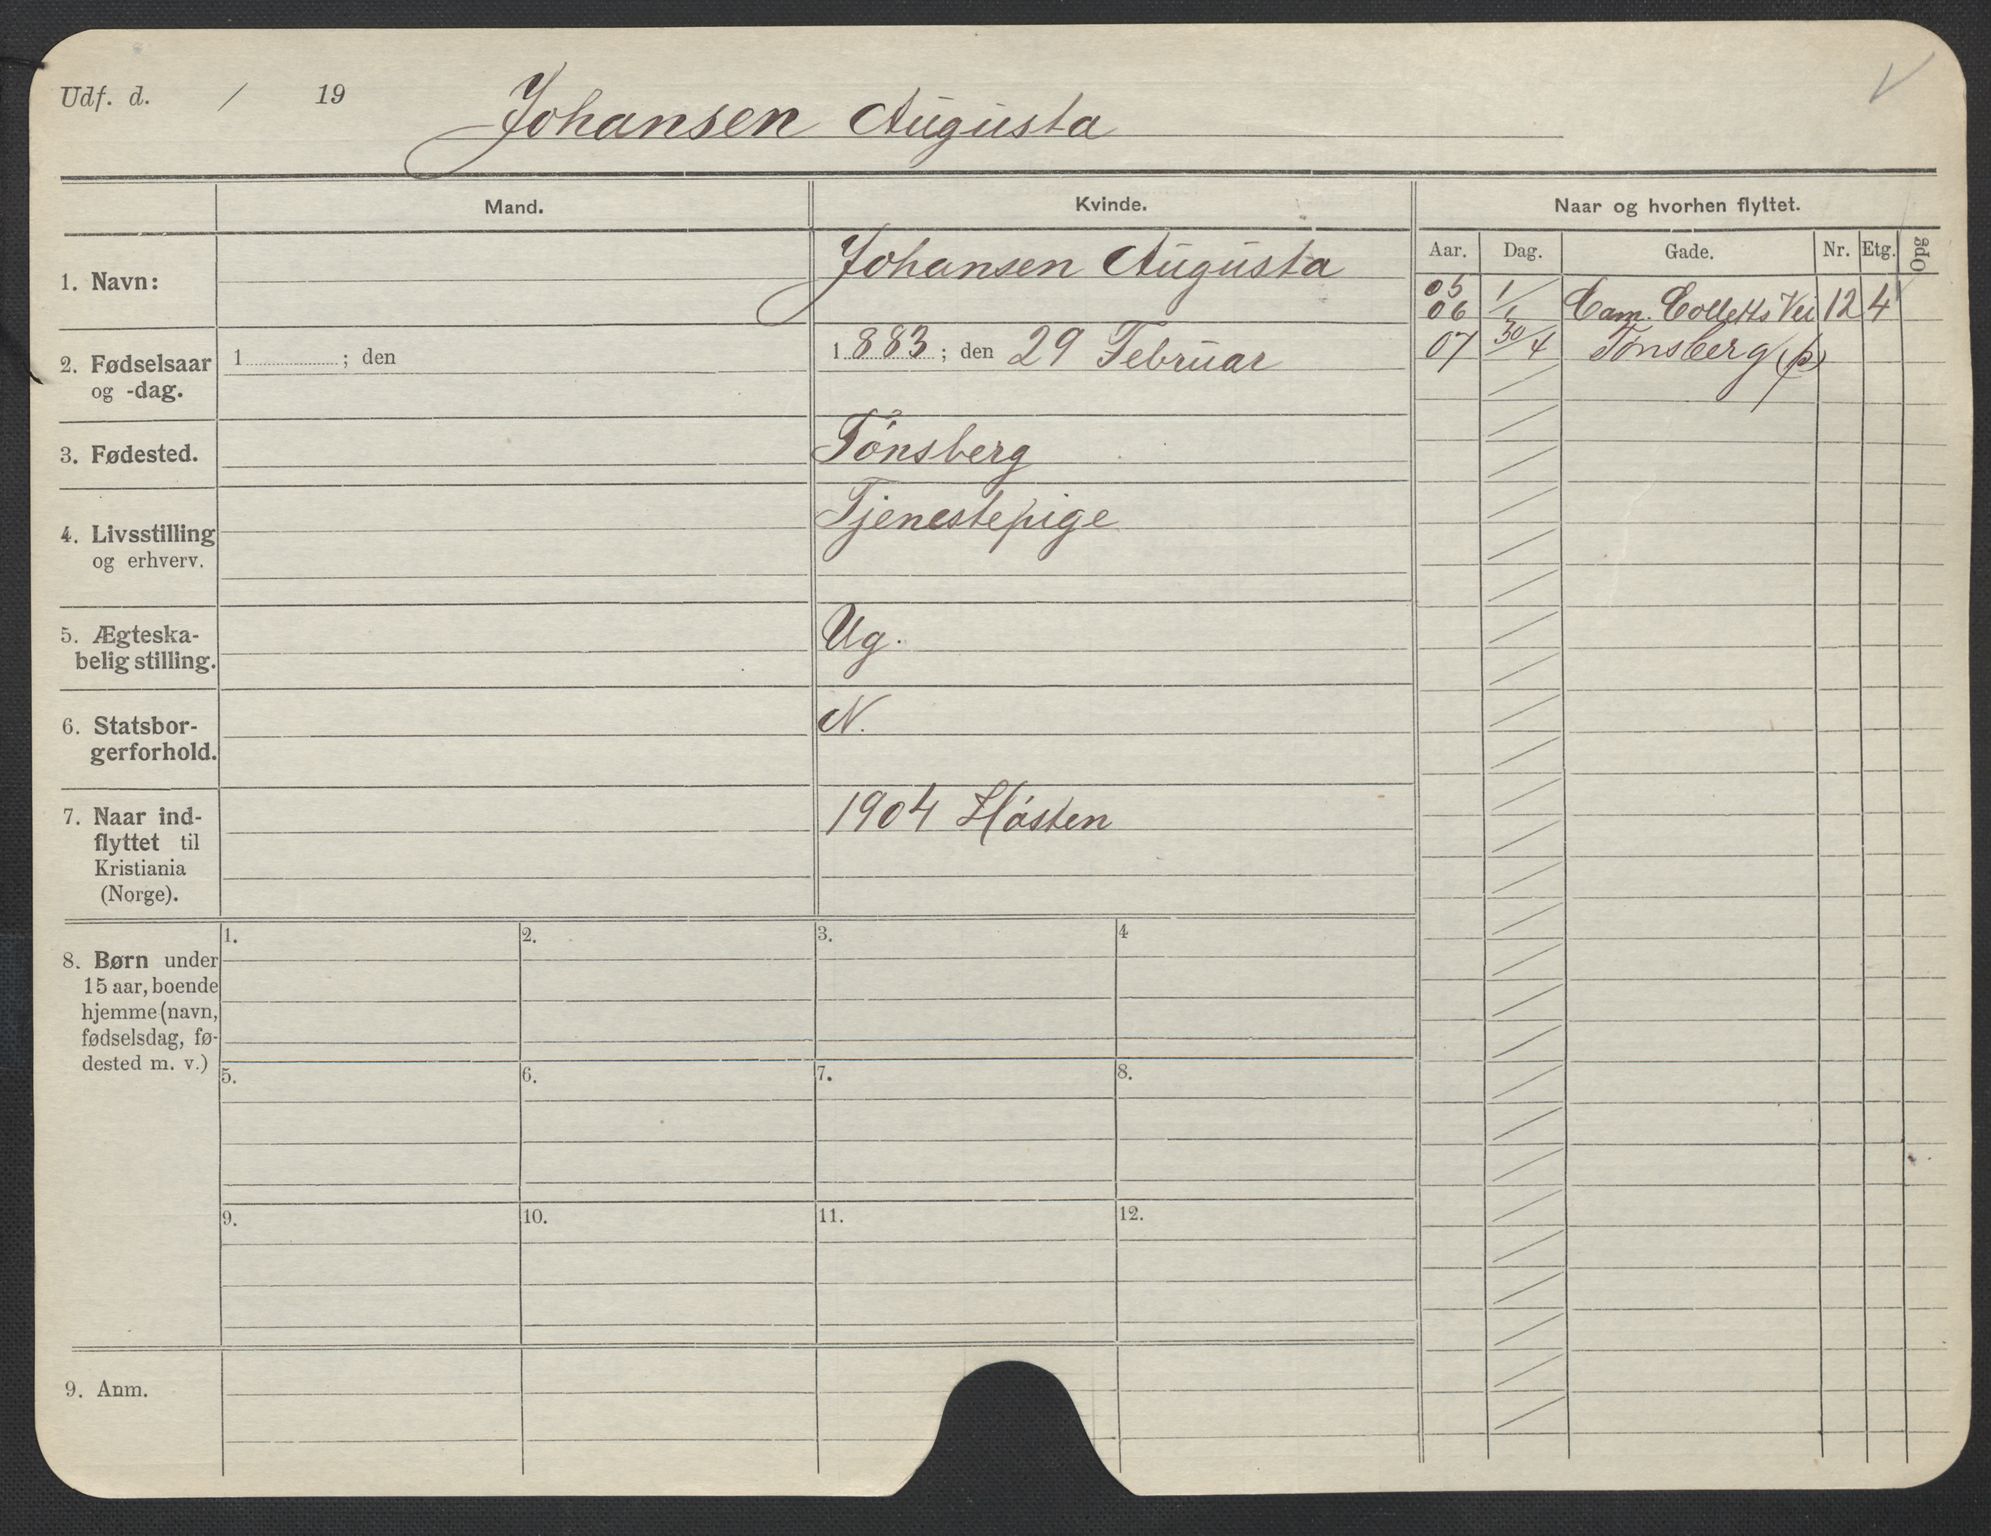 Udf. d. / 19 Johansen Augusta
Mand. Kvinde. Naar og hvorhen flyttet.
Aar. Dag. Gade. Nr. Etg. Opg
1. Navn: Johansen Augusta
05 1/
06 1/1 Cam. Colletts Vei 12 4
07 30/4 Tønsberg (p)
2. Fødselsaar
og -dag.
1 ; den
1883; den 29 Februar
3. Fødested. Tønsberg
4. Livsstilling
og erhverv.
Tjenestepige
5. Ægteska-
belig stilling.
Ug.
6. Statsbor-
gerforhold.
N.
7. Naar ind-
flyttet til
Kristiania
(Norge).
1904 Høsten
8. Børn under
15 aar, boende
hjemme (navn,
fødselsdag, fø-
dested m. v.)
1. 2. 3. 4
5. 6. 7. 8.
9. 10. 11. 12.
9. Anm.